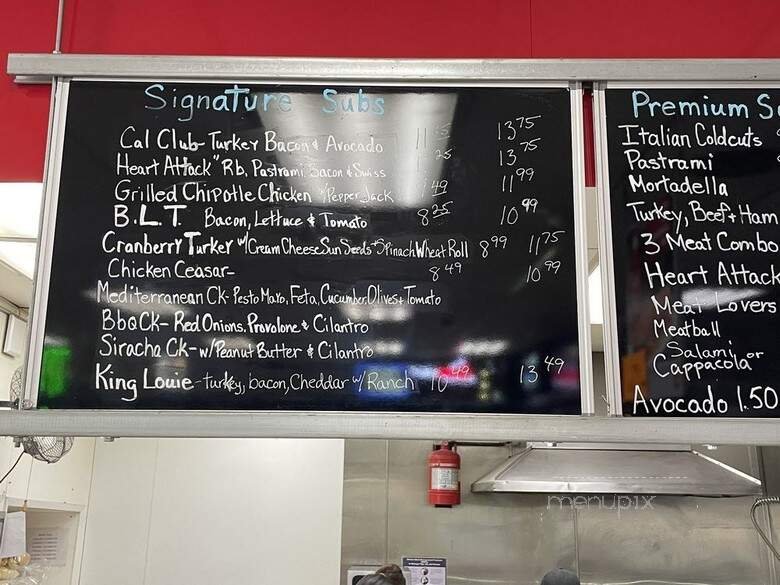 Signature Subs
Cal Club- Turkey Bacon & Avocado 13 75
Heart Attack" Rb, Pastrami, Bacon & Swiss 13 75
Grilled Chipotle Chicken Pepper Jack 11 99
B.L.T. Bacon, Lettuce & Tomato 8 25 10 99
Cranberry Turkey w/Cream Cheese Sun Seeds + Spinach Wheat Roll 8 99 11 75
Chicken Ceasar- 8 49 10 99
Mediterranean Ck- Pesto Mayo, Feta, Cucumber, Olives + Tomato
BbQ Ck- Red Onions, Provolone & Cilantro
Siracha Ck- w/Peanut Butter & Cilantro
King Louie- turkey, bacon, Cheddar w/Ranch 10 49 13 49
Premium S
Italian Coldcuts
Pastrami
Mortadella
Turkey, Beef + Ham
3 Meat Combo
Heart Attack
Meat Lovers
Meatball
Salami or
Cappacola
Avocado 1.50
menupix